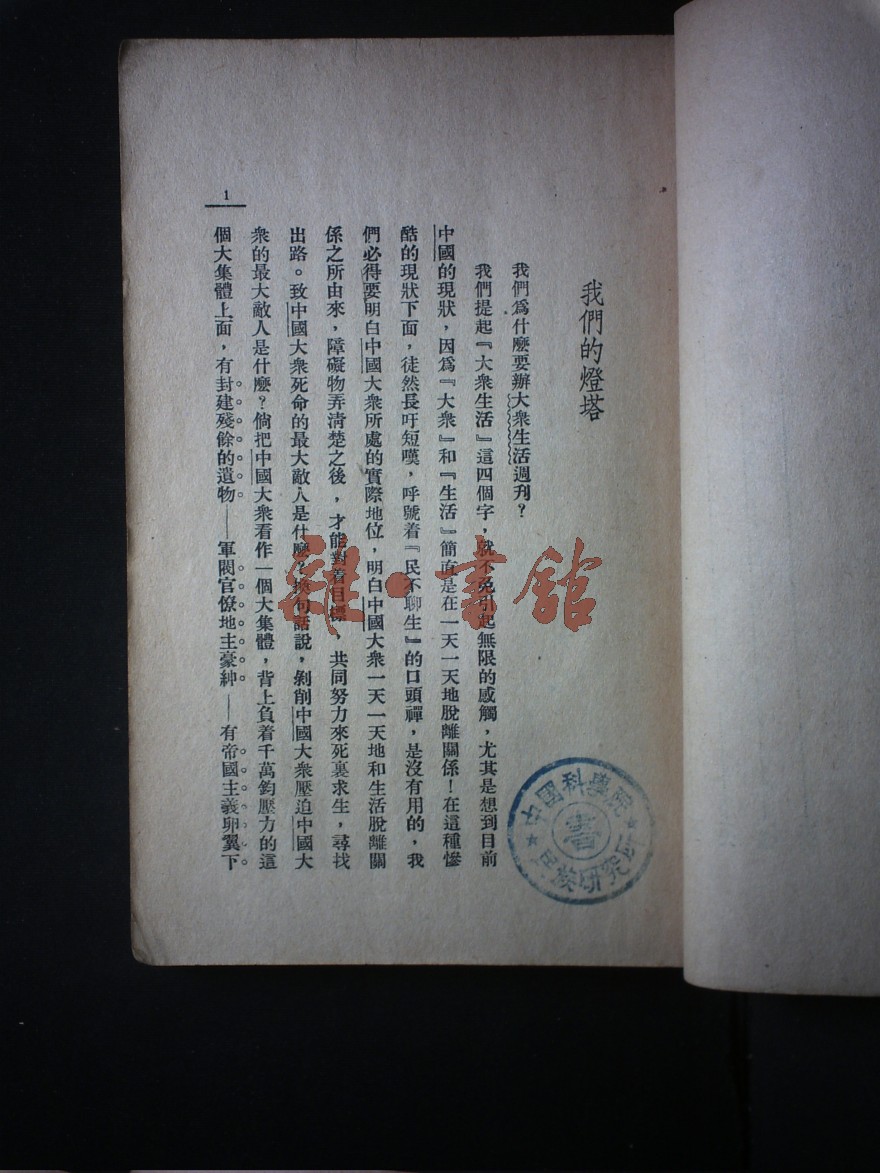 我們的燈塔
我們爲什麼要辦大衆生活週刋？
我們提起『大衆生活』這四個字，就不免引起無限的感觸，尤其是想到目前
中國的現狀，因爲『大衆』和『生活』簡直是在一天一天地脫離關係！在這種慘
酷的現狀下面，徒然長吁短嘆，呼號着『民不聊生』的口頭禪，是沒有用的，我
們必得要明白中國大衆所處的實際地位，明白中國大衆一天一天地和生活脫離關
係之所由來，障礙物弄淸楚之後，才能對着目標，共同努力來死裏求生，尋找
出路。致中國大衆死命的最大敵人是什麼？換句話說，剝削中國大衆壓迫中國大
衆的最大敵人是什麼？倘把中國大衆看作一個大集體，背上負着千萬鈞壓力的這
個大集體上面，有封建殘餘的遺物——軍閥官僚地主豪紳——有帝國主義卵翼下
1
中國科學院
民族研究所
書
雒·書館